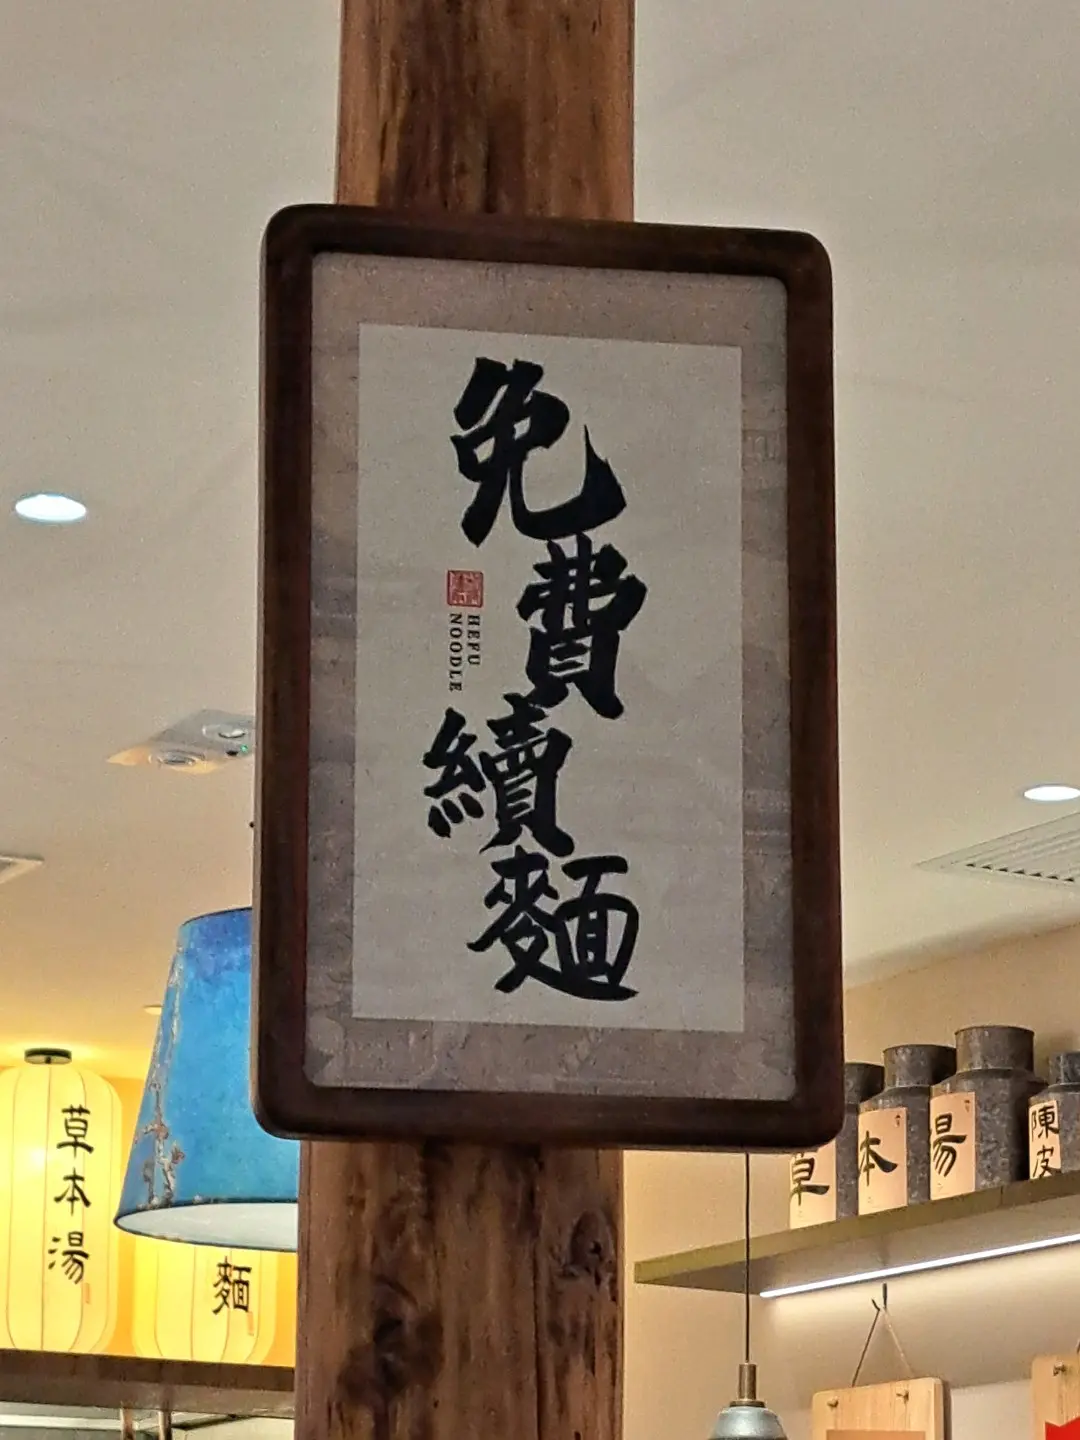 免費續麵
HEFU
NOODLE
草本湯
麵
草
本
湯
陳皮